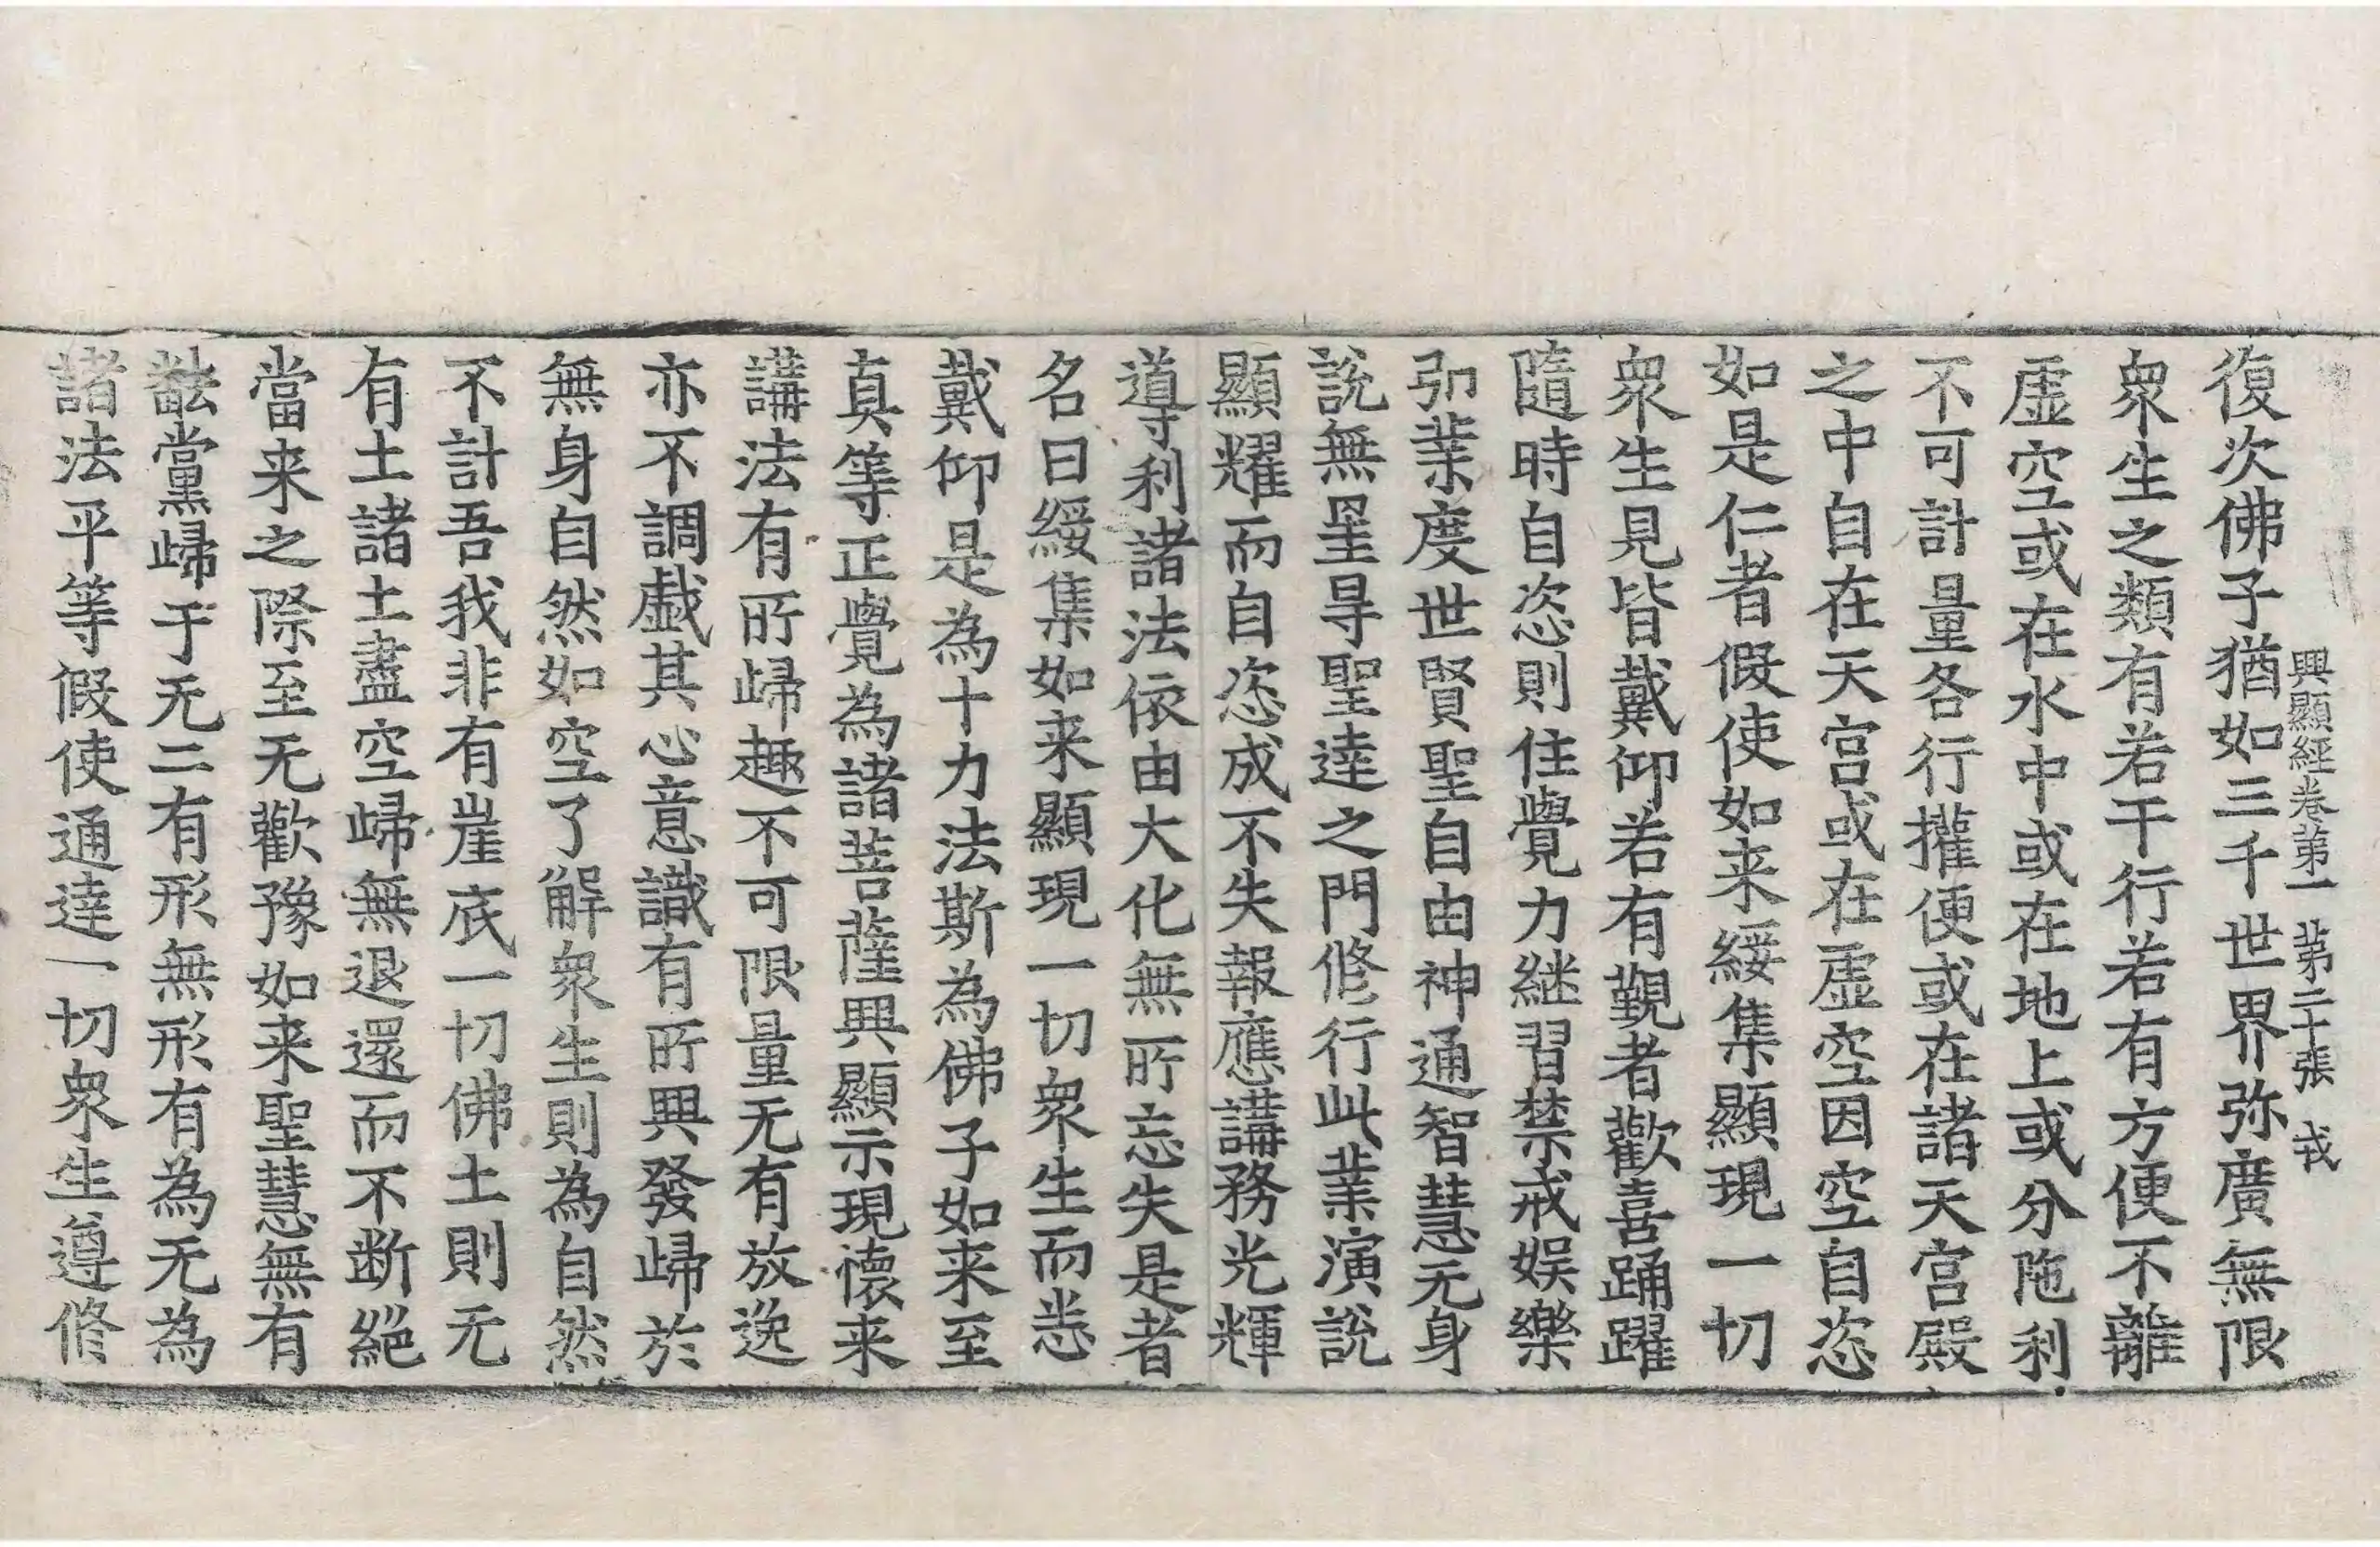 興顯經卷第一 第二十張 戎
復次佛子猶如三千世界弥廣無限
衆生之類有若干行若有方便不離
虛空或在水中或在地上或分陁利
不可計量各行權便或在諸天宮殿
之中自在天宮或在虛空因空自恣
如是仁者假使如来綏集顯現一切
衆生見皆戴仰若有觀者歡喜踊躍
隨時自恣則住覺力継習禁戒娱樂
勸業度世賢聖自由神通智慧无身
說無罣㝵聖達之門修行此業演說
顯耀而自恣成不失報應講務光輝
導利諸法依由大化無所忘失是者
名曰綏集如来顯現一切衆生而悉
戴仰是為十力法斯為佛子如来至
真等正覺為諸菩薩興顯示現懐来
講法有所歸趣不可限量无有放逸
亦不調戱其心意識有所興發歸於
無身自然如空了解衆生則為自然
不計吾我非有崖底一切佛土則无
有土諸土盡空歸無退還而不断絕
當来之際至无歡豫如来聖慧無有
黨歸于无二有形無形有為无為
諸法平等假使通達一切衆生遵修